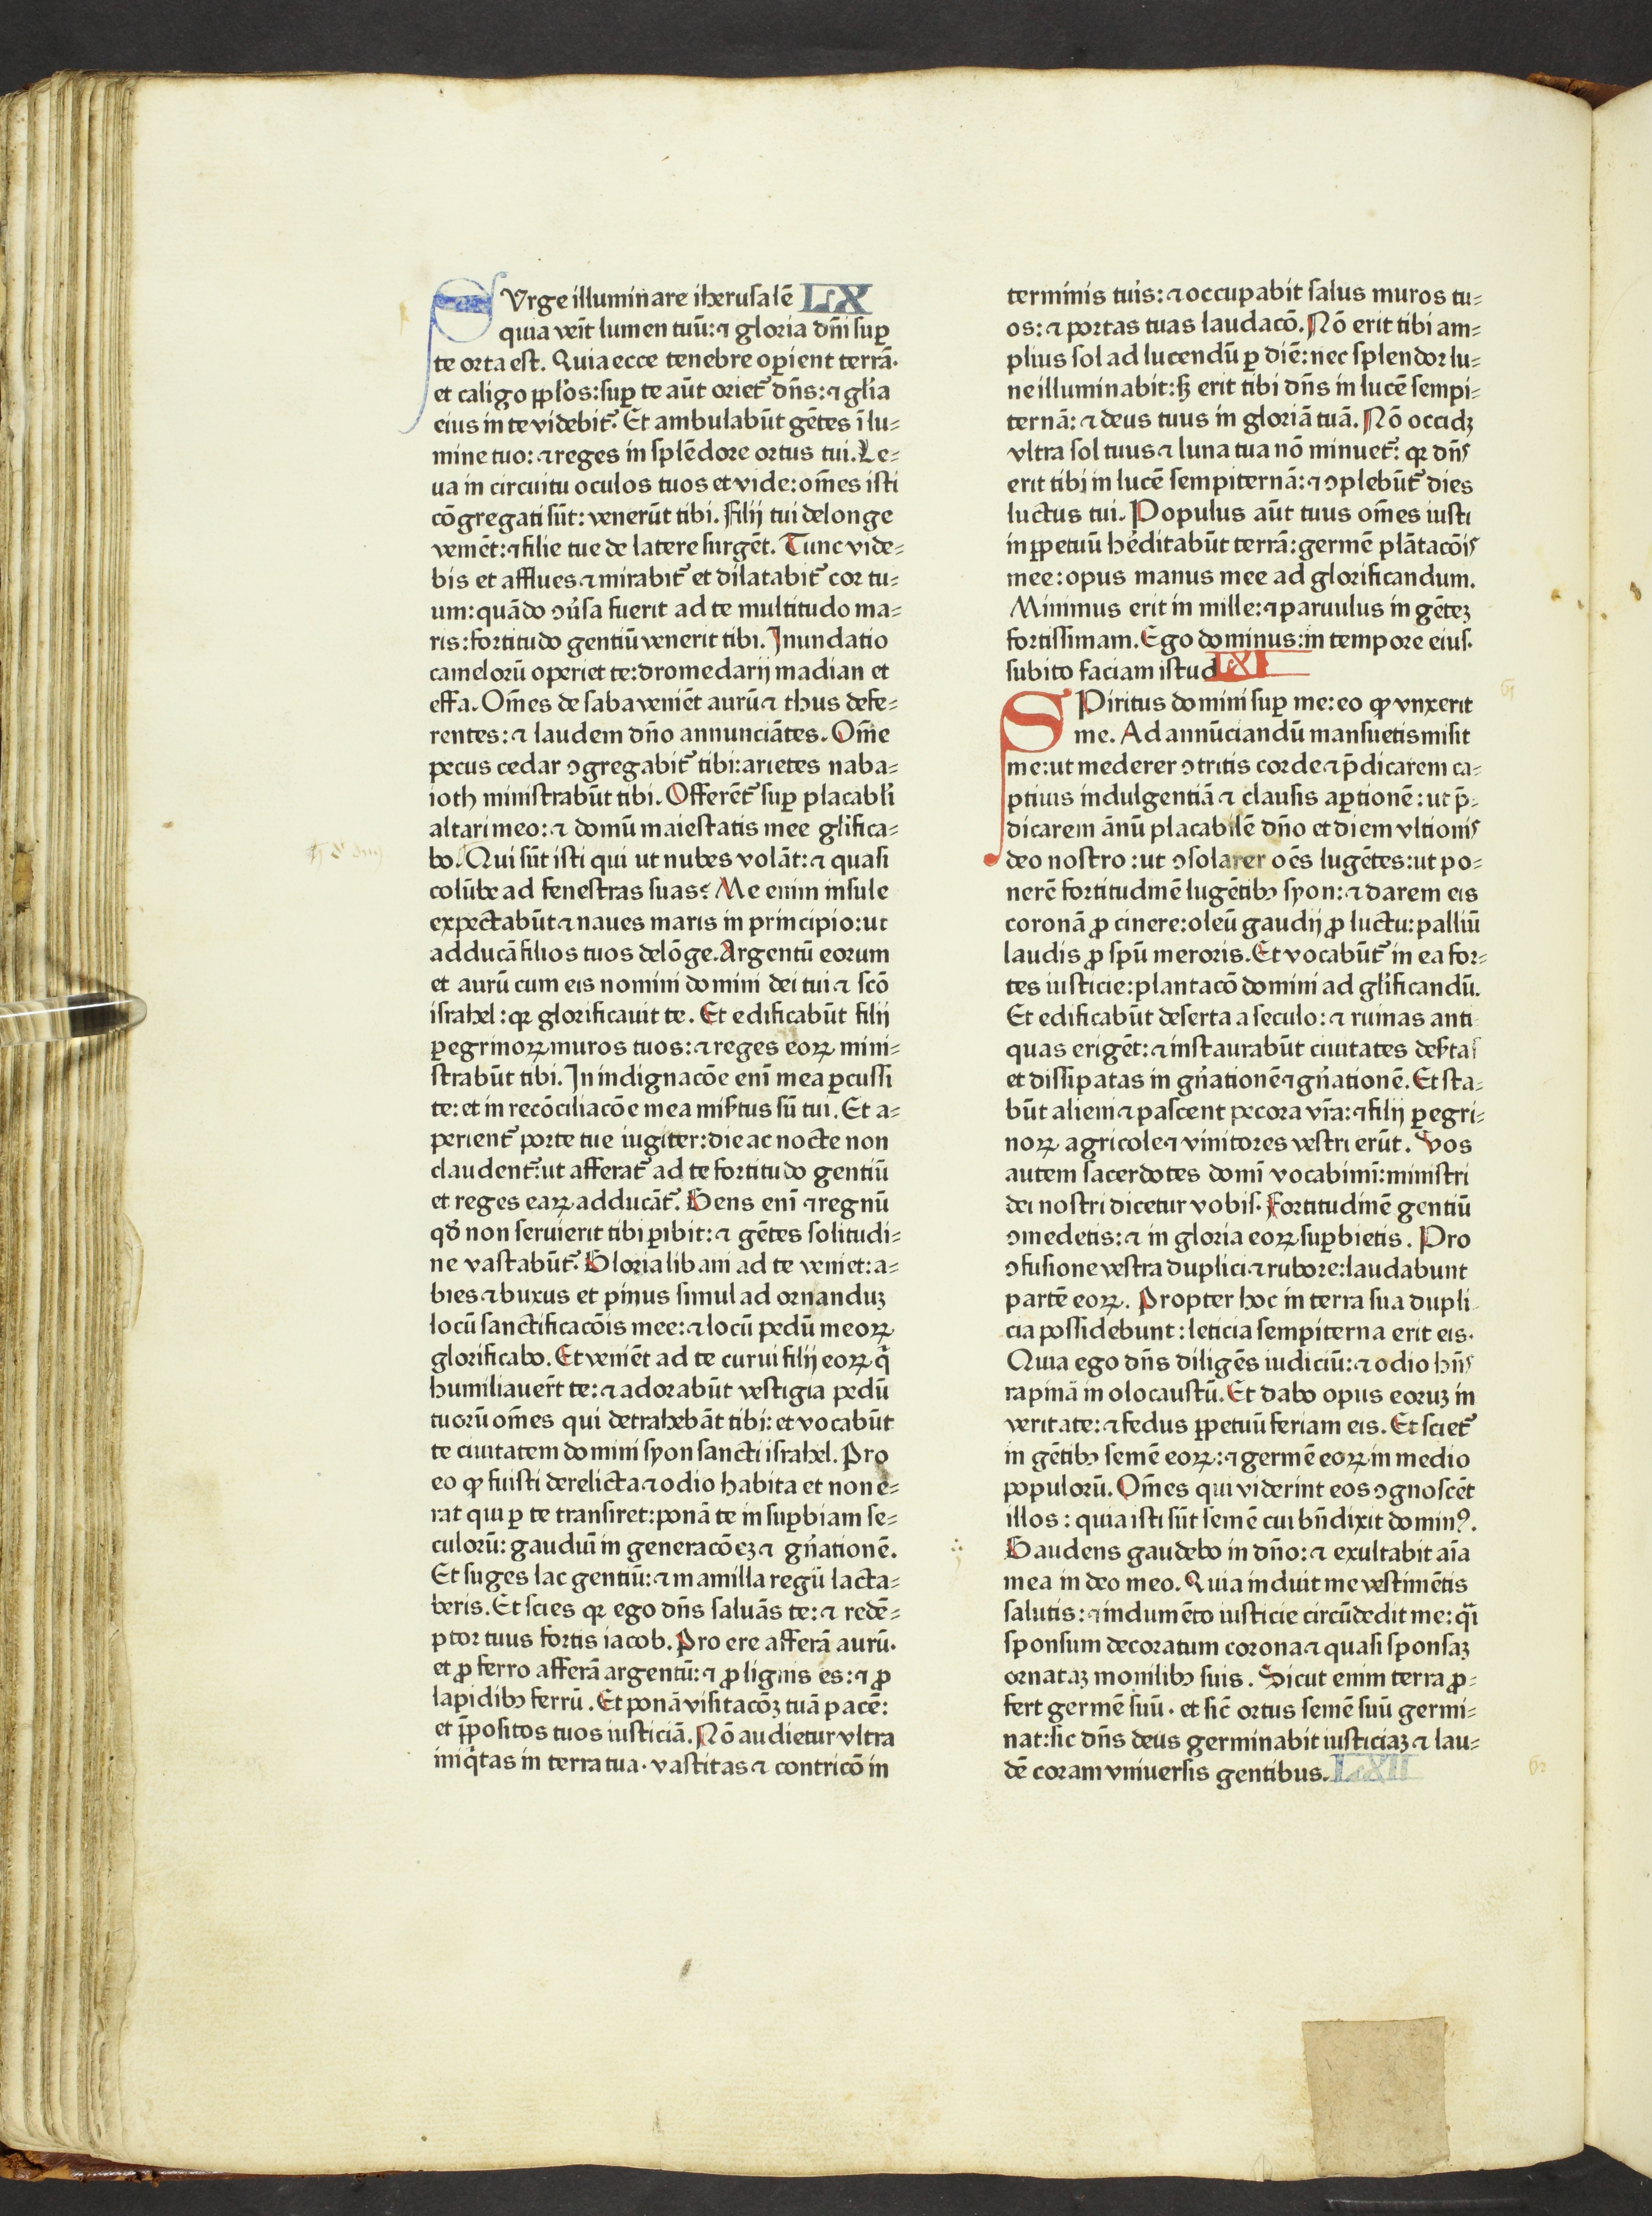 SUrge illuminare iherusalē LX
quia veīt lumen tuū: ⁊ gloria dn̄i suꝑ
te orta est. Quia ecce tenebre oꝑient terrā.
et caligo ppl̓os: suꝑ te aūt oriet᷑ dn̄s: ⁊ gl̓ia
eius in te videbit᷑. Et ambulabūt gētes ī lu⸗
mine tuo: ⁊ reges in splēdore ortus tui. Le⸗
ua in circuitu oculos tuos et vide: om̄es isti
cōgregati sūt: venerūt tibi. Filij tui de longe
veniēt: ⁊ filie tue de latere surgēt. Tunc vide⸗
bis et afflues ⁊ mirabit᷑ et dilatabit᷑ cor tu⸗
um: quādo ꝯu̓sa fuerit ad te multitudo ma⸗
ris: fortitudo gentiū venerit tibi. Inundatio
camelorū operiet te: dromedarij madian et
effa. Om̄es de saba veniēt aurū ⁊ thus defe⸗
rentes: ⁊ laudem dn̄o annunciātes. Om̄e
pecus cedar ꝯgregabit᷑ tibi: arietes naba⸗
ioth ministrabūt tibi. Offerēt᷑ suꝑ placabl̓i
altari meo: ⁊ domū maiestatis mee gl̓ifica⸗
bo. Qui sūt isti qui ut nubes volāt: ⁊ quasi
colūbe ad fenestras suas? Me enim insule
expectabūt ⁊ naues maris in principio: ut
adducā filios tuos de lōge. Argentū eorum
et aurū cum eis nomini domini dei tui ⁊ scō
israhel: qꝛ glorificauit te. Et edificabūt filij
ꝑegrinoꝝ muros tuos: ⁊ reges eoꝝ mini⸗
strabūt tibi. In indignacōe enī mea ꝑcussi
te: et in recōciliacōe mea mis̓tus sū tui. Et a⸗
perient᷑ porte tue iugiter: die ac nocte non
claudent᷑: ut afferat᷑ ad te fortitudo gentiū
et reges eaꝝ adducāt᷑. Gens enī ⁊ regnū
qd̓ non seruierit tibi ꝑibit: ⁊ gētes solitudi⸗
ne vastabūt᷑. Gloria libani ad te veniet: a⸗
bies ⁊ buxus et pinus simul ad ornanduꝫ
locū sanctificacōis mee: ⁊ locū pedū meoꝝ
glorificabo. Et veniēt ad te curui filij eoꝝ q̄
humiliauer̄t te: ⁊ adorabūt vestigia pedū
tuorū om̄es qui detrahebāt tibi: et vocabūt
te ciuitatem domini syon sancti israhel. Pro
eo ꝙ fuisti derelicta ⁊ odio habita et non e⸗
rat qui ꝑ te transiret: ponā te in suꝑbiam se⸗
culorū: gaudiū in generacōeꝫ ⁊ gn̄ationē.
Et suges lac gentiū: ⁊ mamilla regū lacta⸗
beris. Et scies qꝛ ego dn̄s saluās te: ⁊ redē⸗
ptor tuus fortis iacob. Pro ere afferā aurū.
et ꝓ ferro afferā argentū: ⁊ ꝓ lignis es: ⁊ ꝓ
lapidibꝰ ferrū. Et ponā visitacōꝫ tuā pacē:
et p̄positos tuos iusticiā. Nō audietur vltra
iniq̓tas in terra tua. vastitas ⁊ contricō in
terminis tuis: ⁊ occupabit salus muros tu⸗
os: ⁊ portas tuas laudacō. Nō erit tibi am⸗
plius sol ad lucendū ꝑ diē: nec splendor lu⸗
ne illuminabit: sꝫ erit tibi dn̄s in lucē sempi⸗
ternā: ⁊ deus tuus in gloriā tuā. Nō occidꝫ
vltra sol tuus ⁊ luna tua nō minuet᷑: qꝛ dn̄s
erit tibi in lucē sempiternā: ⁊ ꝯplebūt᷑ dies
luctus tui. Populus aūt tuus om̄es iusti
in ꝑpetuū he̓ditabūt terrā: germē plātacōis
mee: opus manus mee ad glorificandum.
Minimus erit in mille: ⁊ paruulus in gēteꝫ
fortissimam. Ego dominus: in tempore eius.
subito faciam istud LXI
SPiritus domini suꝑ me: eo ꝙ vnxerit
me. Ad annūciandū mansuetis misit
me: ut mederer ꝯtritis corde ⁊ p̄dicarem ca⸗
ptiuis indulgentiā ⁊ clausis aꝑtionē: ut p̄⸗
dicarem ānū placabilē dn̄o et diem vltionis
deo nostro: ut ꝯsolarer oēs lugētes: ut po⸗
nerē fortitudinē lugētibꝰ syon: ⁊ darem eis
coronā ꝓ cinere: oleū gaudij ꝓ luctu: palliū
laudis ꝓ spū meroris. Et vocabūt᷑ in ea for⸗
tes iusticie: plantacō domini ad gl̓ificandū.
Et edificabūt deserta a seculo: ⁊ ruinas anti
quas erigēt: ⁊ instaurabūt ciuitates des̓tas
et dissipatas in gn̄ationē ⁊ gn̄ationē. Et sta⸗
būt alieni ⁊ pascent pecora vr̄a: ⁊ filij ꝑegri⸗
noꝝ agricole ⁊ vinitores vestri erūt. Vos
autem sacerdotes domī vocabimī: ministri
dei nostri dicetur vobis. Fortitudinē gentiū
ꝯmedetis: ⁊ in gloria eoꝝ suꝑbietis. Pro
ꝯfusione vestra duplici ⁊ rubore: laudabunt
partē eoꝝ. Propter hoc in terra sua dupli
cia possidebunt: leticia sempiterna erit eis.
Quia ego dn̄s diligēs iudiciū: ⁊ odio hn̄s
rapinā in olocaustū. Et dabo opus eoruꝫ in
veritate: ⁊ fedus ꝑpetuū feriam eis. Et sciet᷑
in gētibꝰ semē eoꝝ: ⁊ germē eoꝝ in medio
populorū. Om̄es qui viderint eos ꝯgnoscēt
illos: quia isti sūt semē cui bn̄dixit dominꝰ.
Gaudens gaudebo in dn̄o: ⁊ exultabit aīa
mea in deo meo. Quia induit me vestimētis
salutis: ⁊ indumēto iusticie circūdedit me: qͣi
sponsum decoratum corona ⁊ quasi sponsaꝫ
ornataꝫ monilibꝰ suis. Sicut enim terra ꝓ⸗
fert germē suū. et sic̄ ortus semē suū germi⸗
nat: sic dn̄s deus germinabit iusticiaꝫ ⁊ lau⸗
dē coram vniuersis gentibus. LXII